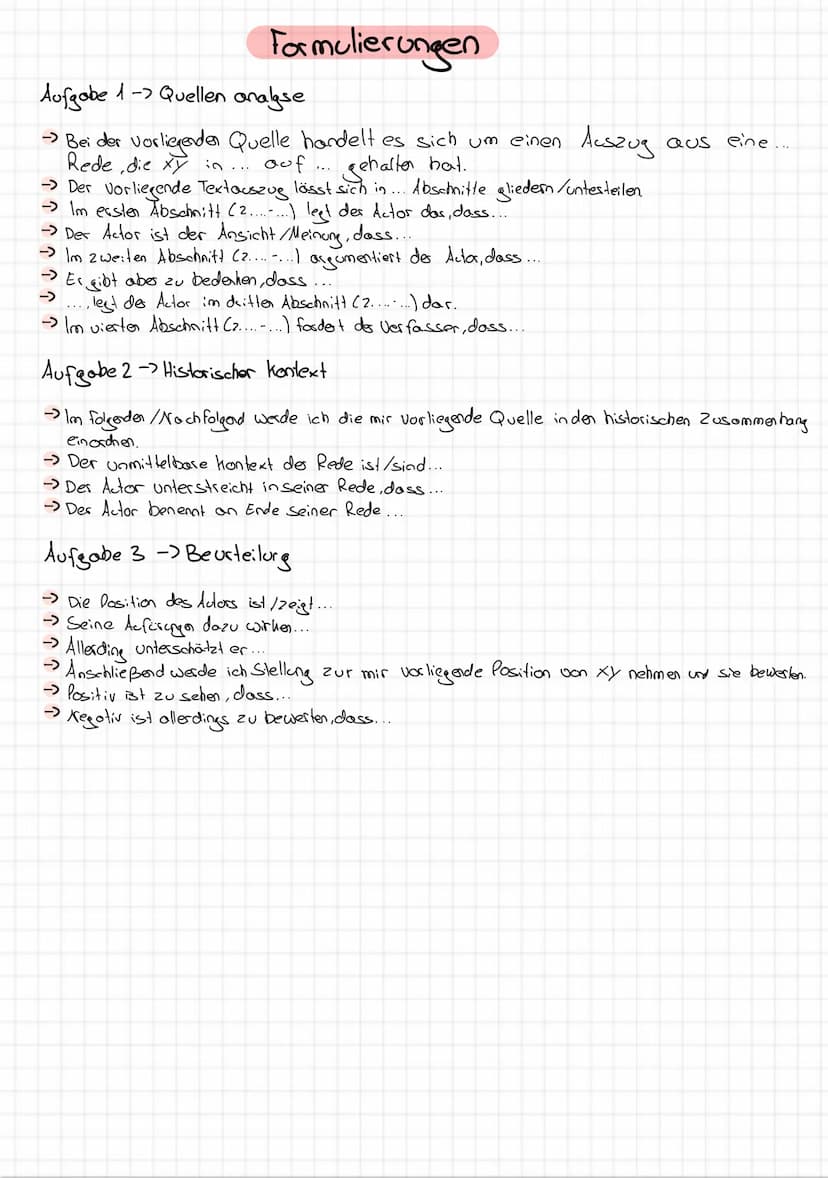 Formulierungen
Aufgabe 1 -> Quellen analyse
-> Bei der vorliegenden Quelle handelt es sich um einen Auszug aus eine ...
Rede, die xy in ... auf ... gehalten hat.
-> Der Vorliegende Textauszug lässt sich in ... Abschnitte gliedern/unterteilen
-> Im ersten Abschnitt (Z....-...) legt der Autor das, dass...
-> Der Autor ist der Ansicht/Meinung, dass...
-> Im zweiten Abschnitt (Z....-...) argumentiert der Autor, dass ...
-> Er gibt aber zu bedenken, dass ...
-> ..., legt der Autor im dritten Abschnitt (Z....-...) dar.
-> Im vierten Abschnitt (Z....-...) fordert der Verfasser, dass...
Aufgabe 2 -> Historischer Kontext
-> Im folgenden/Nachfolgend werde ich die mir vorliegende Quelle in den historischen Zusammenhang
einordnen.
-> Der unmittelbare Kontext der Rede ist/sind...
-> Der Autor unterstreicht in seiner Rede, dass...
-> Der Autor benennt an Ende seiner Rede ...
Aufgabe 3 -> Beurteilung
-> Die Position des Autors ist/zeigt...
-> Seine dazu wirken...
-> Allerding unterschätzt er...
-> Anschließend werde ich Stellung zur mir vorliegende Position von XY nehmen und sie bewerten.
-> Positiv ist zu sehen, dass...
-> Negativ ist allerdings zu bewerten, dass...